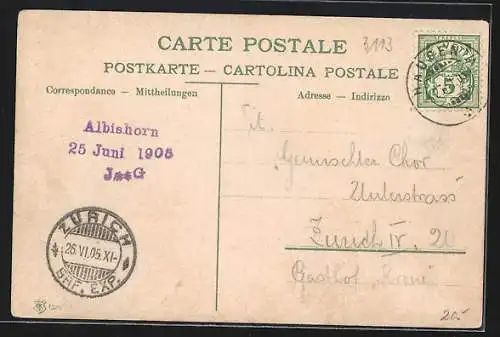 CARTE POSTALE
POSTKARTE — CARTOLINA POSTALE
Correspondance - Mittheilungen
Adresse - Indirizzo
3/113
HAUSEN
5
Albishorn
25 Juni 1905
J**G
Tit.
Gemischter Chor
Unterstrass
Zürich IV. 20
Gasthof
ZÜRICH
26.VI.05.XI-
BRF. EXP.
20.-